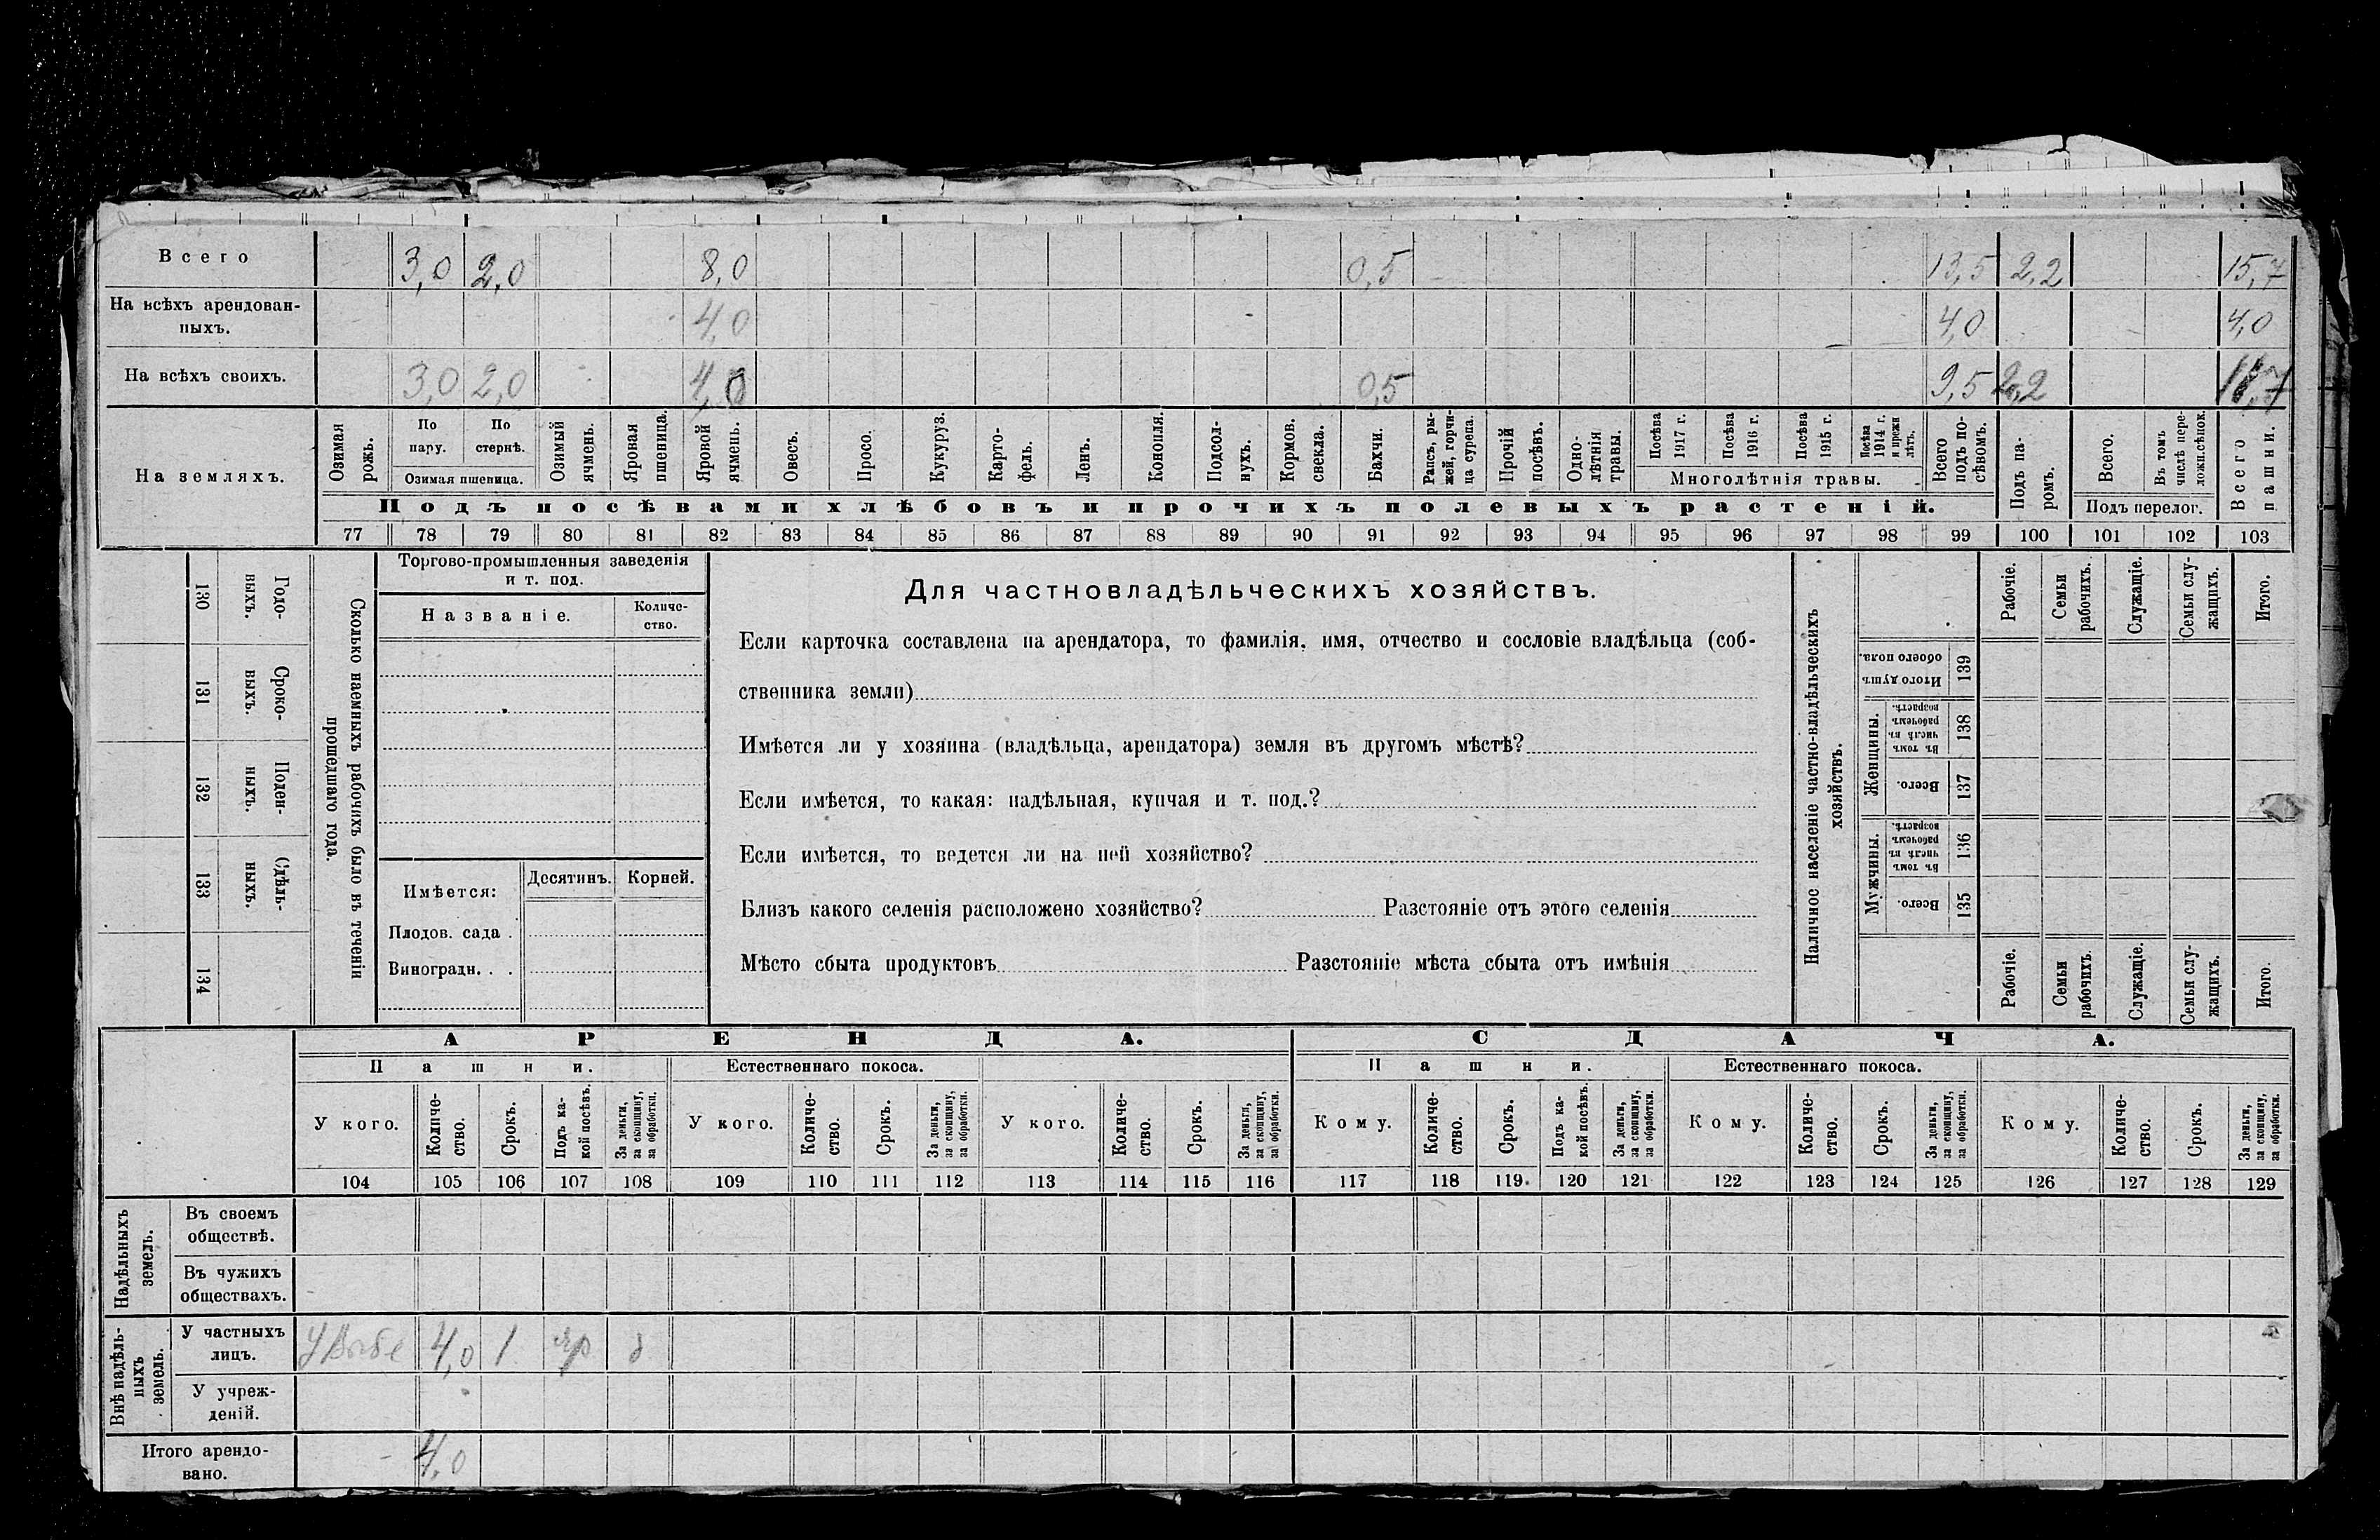 Всего 3,0 2,0 8,0 0,5 13,5 2,2 15,7
На всѣхъ арендован-
ныхъ. 4,0 4,0 4,0
На всѣхъ своихъ. 3,0 2,0 4,0 0,5 9,5 2,2
На земляхъ.
Озимая рожь.
По пару.
По стернѣ.
Озимая пшеница.
Озимый ячмень.
Яровая пшеница.
Яровой ячмень.
Овесъ.
Просо.
Кукуруз.
Карто-
фель.
Ленъ.
Конопля.
Подсол-
нухъ.
Кормов. свекла.
Бахчи.
Рапсъ, ры-
жей, горчи-
ца сурепа.
Прочій посѣвъ.
Одно-
лѣтнія травы.
Посѣва 1917 г.
Посѣва 1916 г.
Посѣва 1915 г.
Посѣва 1914 г. и прежн лѣтъ.
Многолѣтнія травы.
Всего подъ по-
сѣвомъ.
Подъ па-
ромъ.
Всего.
Въ томъ числѣ пере-
ложн.сѣнок.
Подъ перелог.
Всего пашни.
Подъ посѣвами хлѣбовъ и прочихъ полевыхъ растеній.
77 78 79 80 81 82 83 84 85 86 87 88 89 90 91 92 93 94 95 96 97 98 99 100 101 102 103
Сколько наемныхъ рабочихъ было въ теченіи
прошедшаго года.
Годо-
выхъ.
130
Сроко-
выхъ.
131
Поден-
ныхъ.
132
Сдѣль-
ныхъ.
133
134
Торгово-промышленныя заведенія
и т. под.
Названіе.
Количе-
ство.
Имѣется:
Десятинъ.
Корней.
Плодов. сада .
Виноградн. . .
Для частновладѣльческихъ хозяйствъ.
Если карточка составлена на арендатора, то фамилія, имя, отчество и сословіе владѣльца (соб-
ственника земли)
Имѣется ли у хозяина (владѣльца, арендатора) земля въ другомъ мѣстѣ?
Если имѣется, то какая: надѣльная, купчая и т. под.?
Если имѣется, то ведется ли на ней хозяйство?
Близъ какого селенія расположено хозяйство? Разстояніе отъ этого селенія
Мѣсто сбыта продуктовъ Разстояніе мѣста сбыта отъ имѣнія
Наличное населеніе частно-владѣльческихъ
хозяйствъ.
Рабочіе.
Семьи рабочихъ.
Служащіе.
Семьи слу-
жащихъ.
Итого.
Итого душъ обоего пола.
139
Женщины.
Въ томъ числѣ въ рабочемъ возрастѣ.
138
Всего.
137
Мужчины.
Въ томъ числѣ въ рабочемъ возрастѣ.
136
Всего.
135
Рабочіе.
Семьи рабочихъ.
Служащіе.
Семьи слу-
жащихъ.
Итого.
АРЕНДА. СДАЧА.
Пашни. Естественнаго покоса. Пашни. Естественнаго покоса.
У кого.
Количе-
ство.
Срокъ.
Подъ ка-
кой посѣвъ.
За деньги, за скопщину, за обработки.
У кого.
Количе-
ство.
Срокъ.
За деньги, за скопщину, за обработки.
У кого.
Количе-
ство.
Срокъ.
За деньги, за скопщину, за обработки.
Кому.
Количе-
ство.
Срокъ.
Подъ ка-
кой посѣвъ.
За деньги, за скопщину, за обработки.
Кому.
Количе-
ство.
Срокъ.
За деньги, за скопщину, за обработки.
Кому.
Количе-
ство.
Срокъ.
За деньги, за скопщину, за обработки.
104 105 106 107 108 109 110 111 112 113 114 115 116 117 118 119. 120 121 122 123 124 125 126 127 128 129
Надѣльныхъ земель.
Въ своемъ
обществѣ.
Въ чужихъ
обществахъ.
Внѣ надѣль-
ныхъ земель.
У частныхъ
лицъ. 4,0 1 яр
У учреж-
деній.
Итого арендо-
вано. 4,0